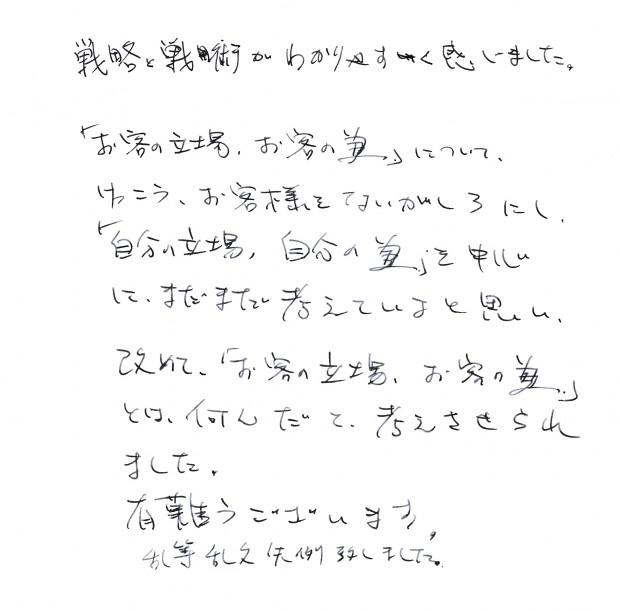 戦略と戦術がわかりやすく感じました。
「お客の立場、お客の道」について、
けっこう、お客様をないがしろにし、
「自分の立場、自分の道」を中心
に、まだまだ考えているなと思い、
改めて、「お客の立場、お客の道」
とは、何んだて、考えさせられ
ました。
有難うございます。
乱筆乱文失例致しました。